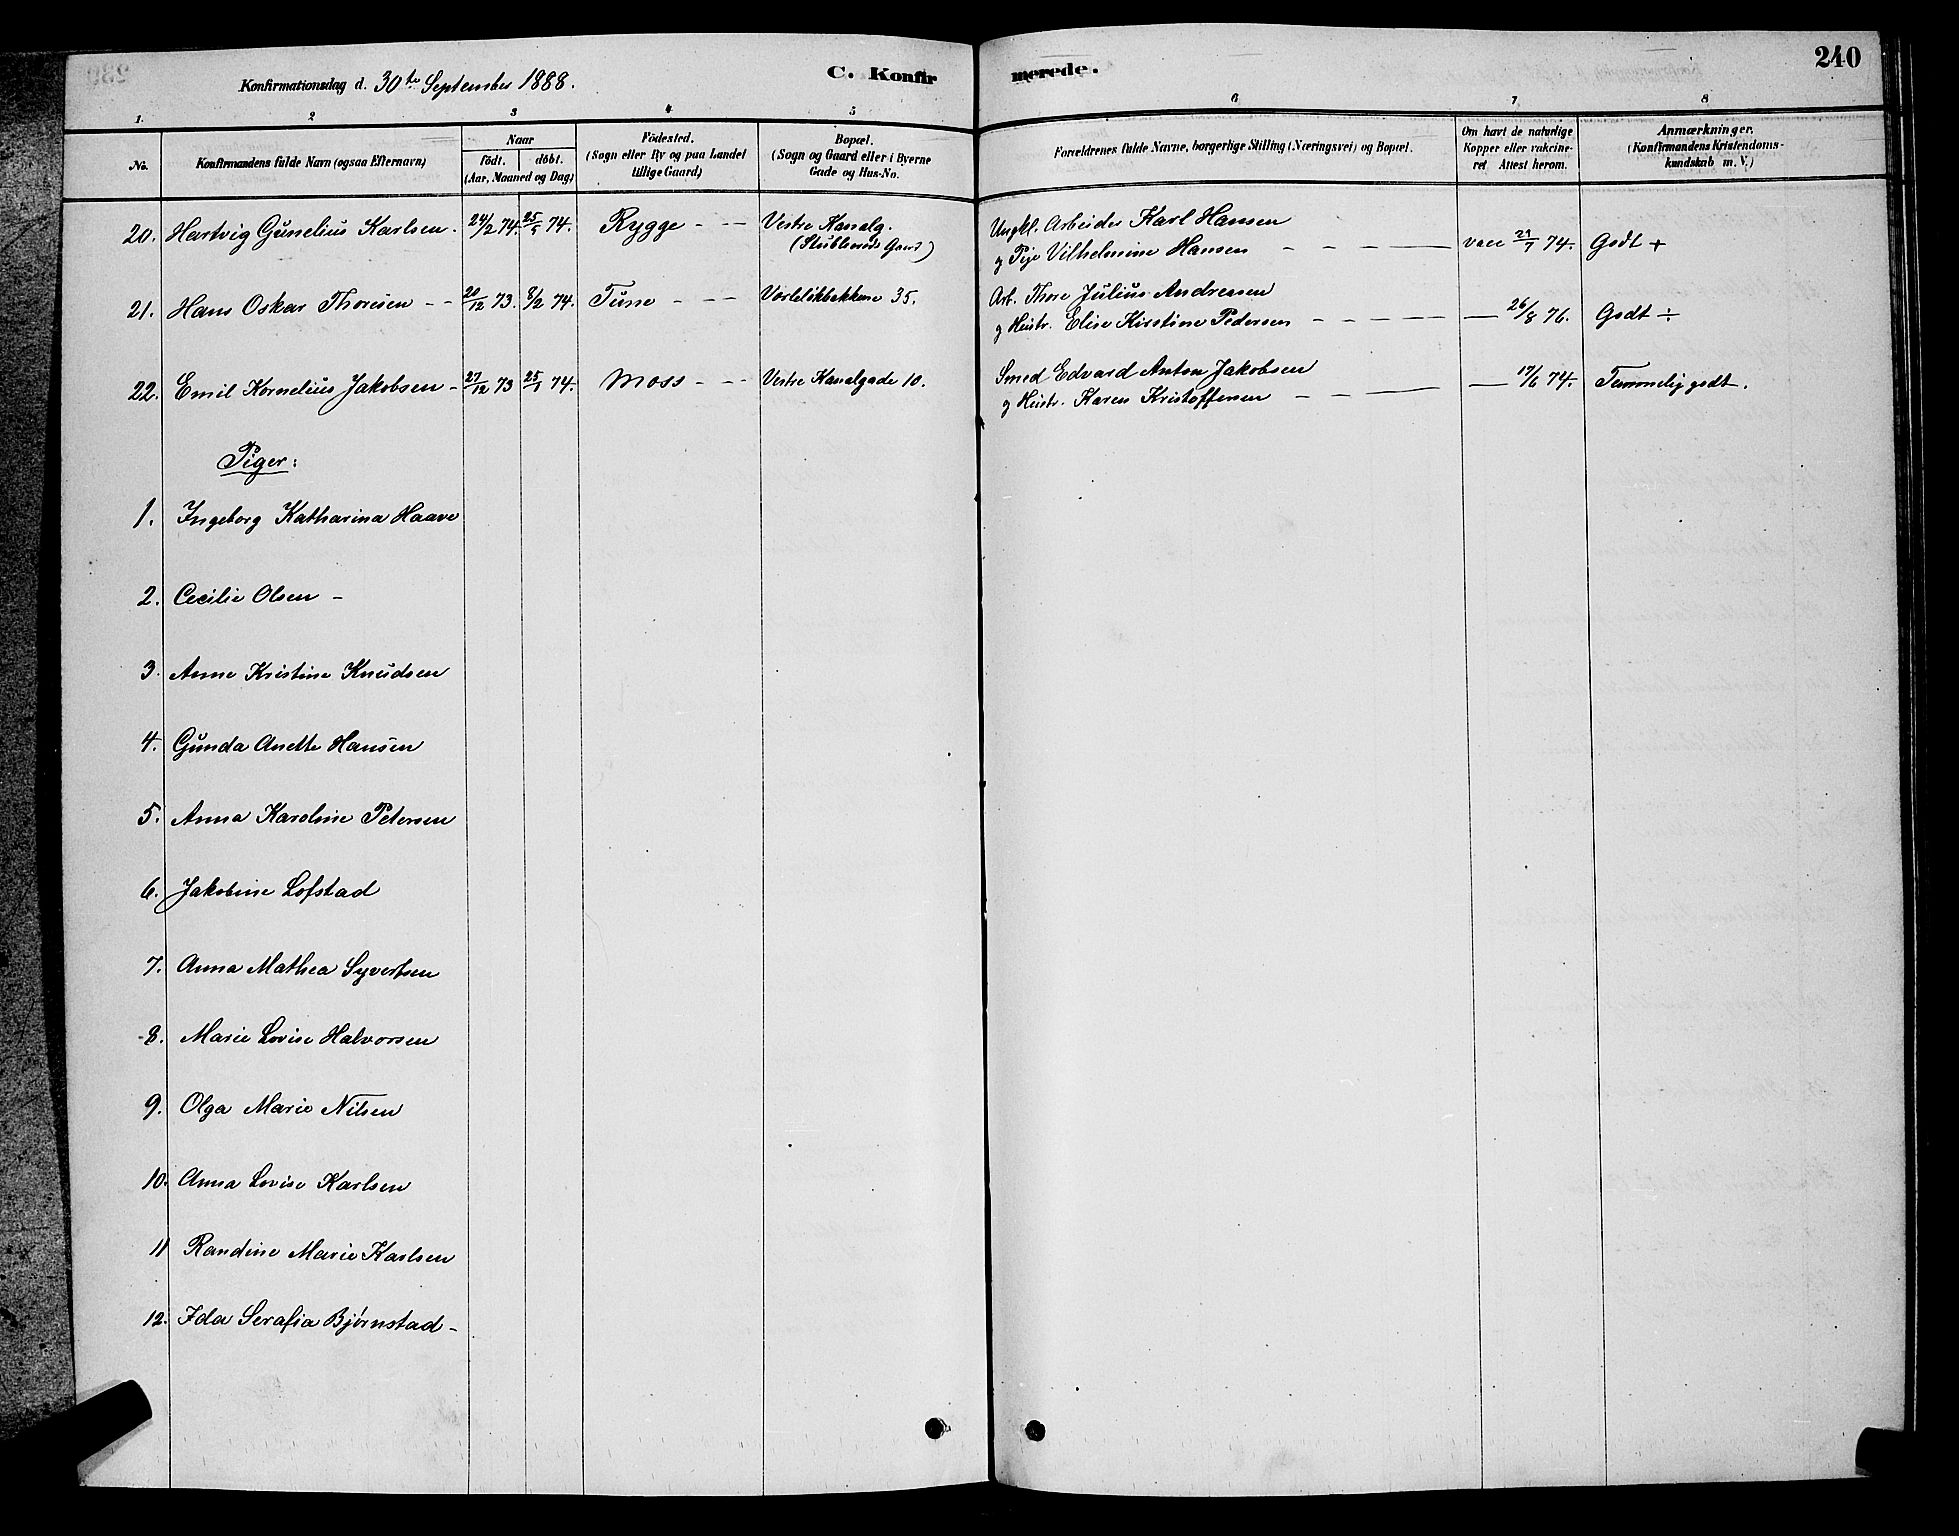 Konfirmationsdag d. 30te September 1888.
C. Konfirmerede.
240
1. 2 3 4 5 6 7 8
No.
Konfirmandens fulde Navn (ogsaa Efternavn)
Naar
födt. döbt.
(Aar, Maaned og Dag)
Födested.
(Sogn eller By og paa Landet
tillige Gaard)
Bopæl.
(Sogn og Gaard eller i Byerne
Gade og Hus-No.
Forældrenes fulde Navne, borgerlige Stilling (Næringsvei) og Bopæl.
Om havt de naturlige
Kopper eller vakcine-
ret Attest herom.
Anmærkninger.
(Konfirmandens Kristendoms-
kundskab m. V.)
20. Hartvig Gunelius Karlsen. 24/2 74. 25/5 74. Rygge - - - Vestre Kanalg. Ungkl. Arbeider Karl Hansen
(Stübleruds Gaard) og Pige Vilhelmine Hansen - - - vacc 21/7 74. Godt +
21. Hans Oskar Thoresen - - 20/12 73. 8/2 74. Tune - - - Vørleløkbakken 35. Arb. Thore Julius Andresen
og Hustr. Elise Kirstine Pedersen - - - - 26/8 76. Godt ÷
22. Emil Kornelius Jakobsen - 27/12 73 25/1 74. Moss - - - Vestre Kanalgade 10. Smed Edvard Anton Jakobsen
og Hustr. Karen Kristoffersen - - - 17/6 74. Temmelig godt.
Piger:
1. Ingeborg Katharina Haave
2. Cecilie Olsen -
3. Anne Kristine Knudsen
4. Gunda Anette Hansen
5. Anna Karoline Petersen
6. Jakobine Lofstad
7. Anna Mathea Syvertsen
8. Marie Lovise Halvorsen
9. Olga Marie Nilsen
10. Anna Lovise Karlsen
11 Randine Marie Karlsen
12. Ida Serafia Bjørnstad -